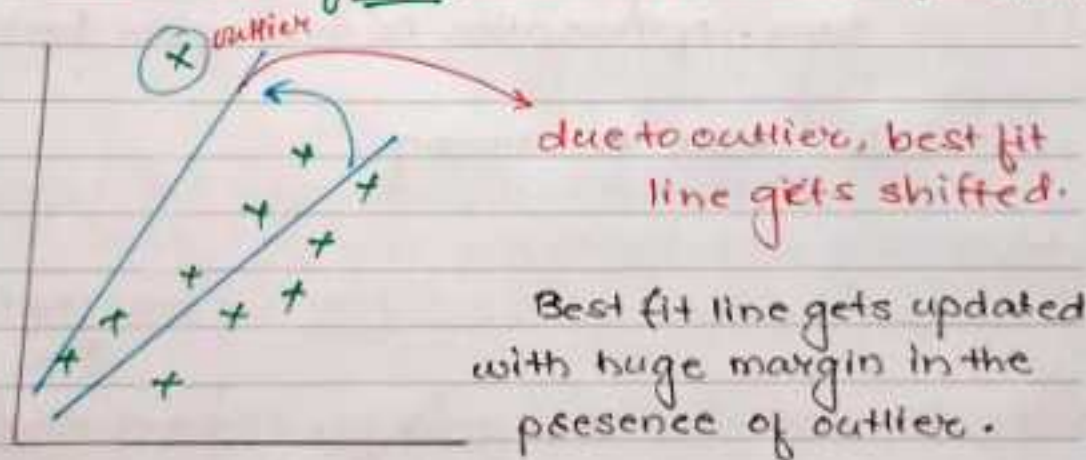 outlier
due to outlier, best fit
line gets shifted.
Best fit line gets updated
with huge margin in the
presence of outlier.